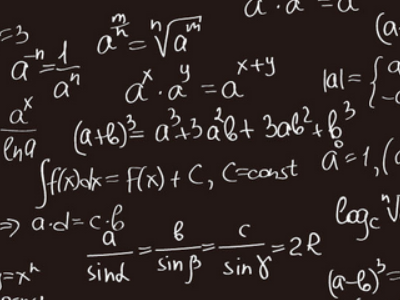 a · a = a
=3
a^(m/n) = ⁿ√a^m
(a-
a^(-n) = 1/a^n
a^x · a^y = a^(x+y)
|a| = { a
-a
a^x/ln a
(a+b)^3 = a^3+3a^2b+3ab^2+b^3
∫f(x)dx = F(x) + C, C=const
a^0 = 1, (
⇒ a·d = c·b
log_c ⁿ√
a/sinα = b/sinβ = c/sinγ = 2R
y=x^n
(a-b)^3 =